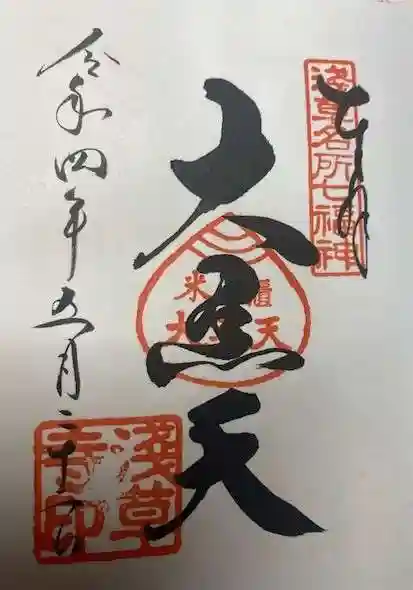 奉拝
淺草名所七福神
大黒天
米櫃
大黒天
令和四年五月二十一日
淺草
寺印